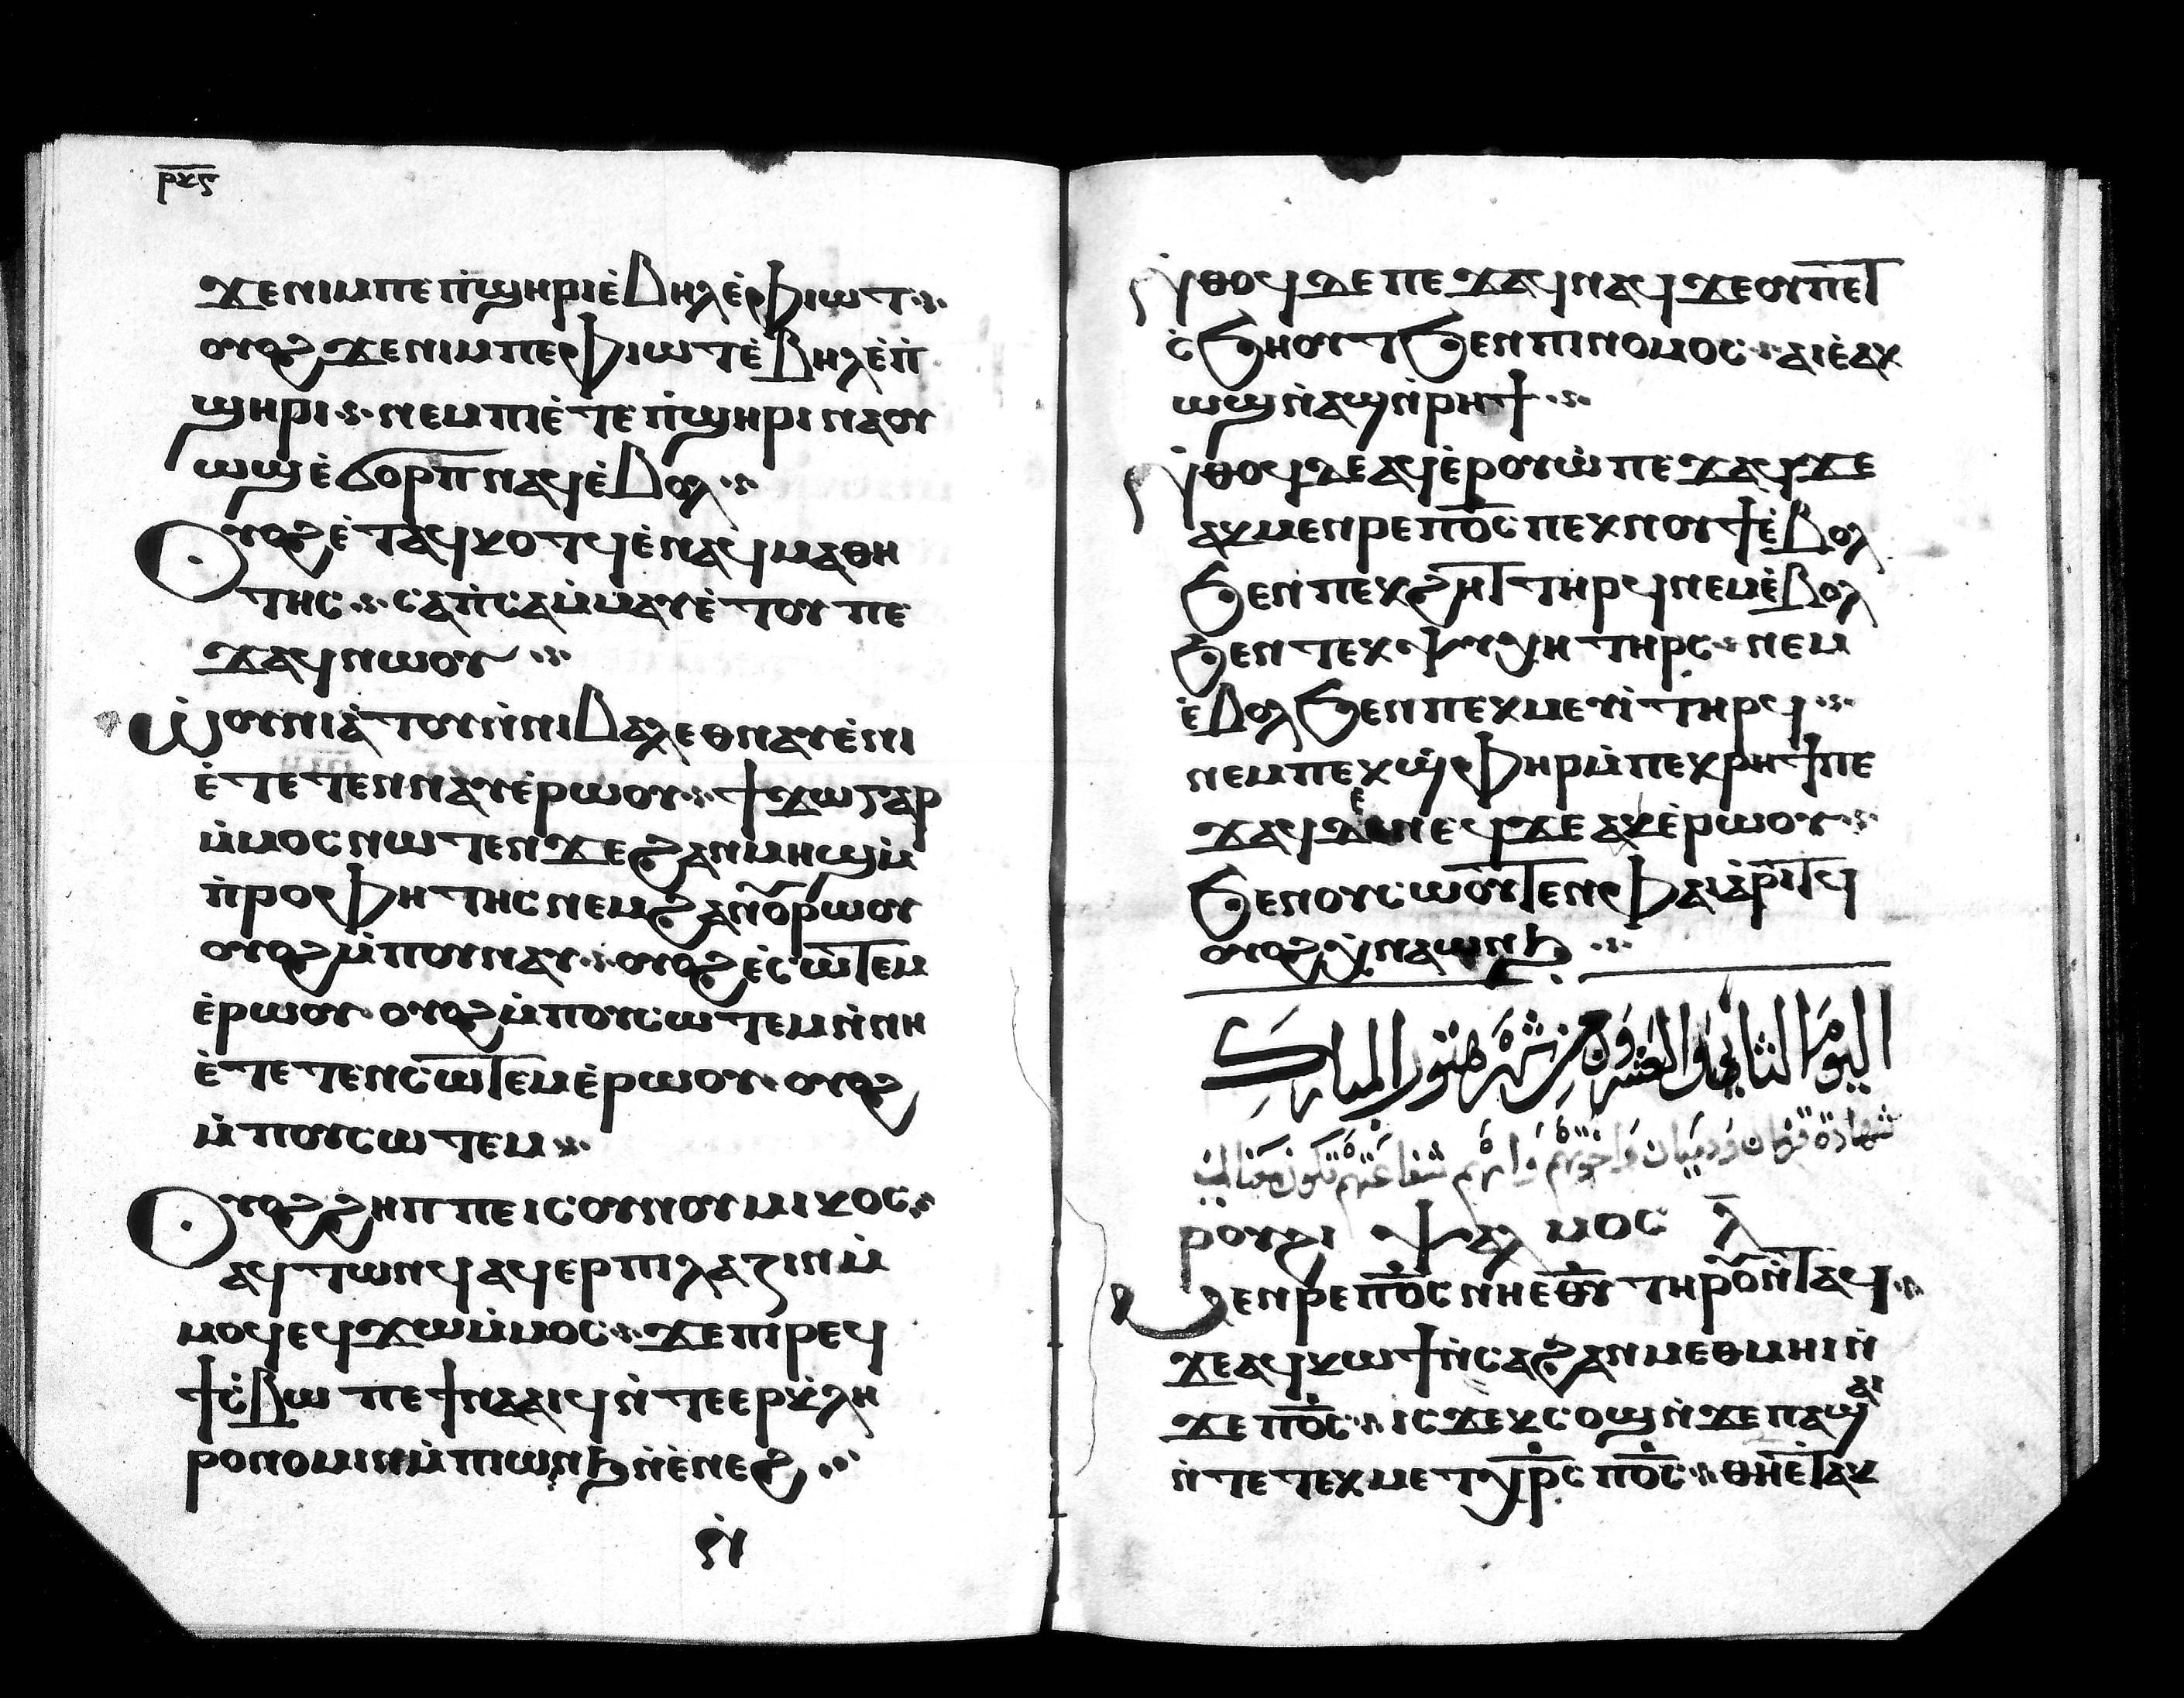 ⲣⲕⲋ
ϫⲉⲛⲓⲙⲡⲉ ⲡ̀ϣⲏⲣⲓⲉ̀ⲃⲏⲗⲉ̀ⲫⲓⲱⲧ
ⲟⲩⲟϩ ϫⲉⲛⲓⲙⲡⲉ ⲫⲓⲱⲧⲉ̀ⲃⲏⲗⲉ̀ⲡ̀
ϣⲏⲣⲓ ⲛⲉⲙⲡⲓⲉ̀ⲧⲉ ⲡ̀ϣⲏⲣⲓ ⲛⲁⲟⲩ
ⲱϣⲉ̀ ϭⲟⲣⲡ ⲛⲁϥⲉ̀ⲃⲟⲗ
Ⲟⲩⲟϩ ⲉ̀ⲧⲁϥⲕⲟⲧϥ ⲉ̀ⲛⲁϥⲙⲁⲑⲏ
ⲧⲏⲥ ⲥⲁⲡ̀ⲥⲁⲙ̀ⲙⲁⲩⲉ̀ⲧⲟⲩ ⲡⲉ
ϫⲁϥⲛⲱⲟⲩ
Ⲱ̀ⲟⲩⲛⲓⲁ̀ⲧⲟⲩⲛ̀ⲛⲓⲃⲁⲗ ⲉⲑⲛⲁⲩⲉ̀ⲛⲓ
ⲉ̀ⲧⲉⲧⲉⲛⲛⲁⲩⲉ̀ⲣⲱⲟⲩ ϯϫⲱⲅⲁⲣ
ⲙ̀ⲙⲟⲥ ⲛⲱⲧⲉⲛ ϫⲉ ϩⲁⲛⲙⲏϣⲙ̀
ⲡ̀ⲣⲟⲫⲏⲧⲏⲥ ⲛⲉⲙ ϩⲁⲛⲟ̅ⲣⲱⲟⲩ
ⲟⲩⲟϩ ⲙ̀ⲡⲟⲩⲛⲁⲩ ⲟⲩⲟϩ ⲉ̀ⲥⲱⲧⲉⲙ
ⲉ̀ⲣⲱⲟⲩ ⲟⲩⲟϩ ⲙ̀ⲡⲟⲩⲥⲱⲧⲉⲙ ⲛ̀ⲛⲏ
ⲉ̀ⲧⲉⲧⲉⲛⲥⲱⲧⲉⲙ ⲉ̀ⲣⲱⲟⲩ ⲟⲩⲟϩ
ⲙ̀ⲡⲟⲩⲥⲱⲧⲉⲙ
Ⲟⲩⲟϩ ϩⲏⲡⲡⲉ ⲓⲥ ⲟⲩⲛⲟⲩⲙⲓⲕⲟⲥ
ⲁϥⲧⲱⲛϥ ⲁϥⲉⲣⲡⲓⲗⲁⲍⲓⲛⲙ̀
ⲙⲟϥ ⲉϥϫⲱⲙ̀ⲙⲟⲥ ϫⲉ ⲡⲓⲣⲉϥ
ϯⲥ̀ⲃⲱ ⲡⲉϯⲛⲁⲁⲓϥ ⲛ̀ⲧⲉⲉⲣⲕ̀ⲗⲏ
ⲣⲟⲛⲟⲙⲓⲛⲙ̀ⲡⲓⲱⲛϧ ⲛ̀ⲉ̀ⲛⲉϩ
Ⲛ̀ⲑⲟϥ ⲇⲉ ⲡⲉϫⲁϥ ⲛⲁϥ ϫⲉ ⲟⲩ ⲡⲉⲧ
ⲥ̀ϧⲏⲟⲩⲧ ϧⲉⲛ ⲡⲓⲛⲟⲙⲟⲥ ⲁⲓⲉ̀ⲁⲕ
ⲱϣ ⲛ̀ⲁϣ ⲛ̀ⲣⲏϯ
Ⲛ̀ⲑⲟϥ ⲇⲉ ⲁϥⲉ̀ⲣⲟⲩⲱ̀ ⲡⲉϫⲁϥ ϫⲉ
ⲁⲕⲙⲉⲛⲣⲉ ⲡⲟ̅ⲥ̅ ⲡⲉⲕⲛⲟⲩϯ ⲉ̀ⲃⲟⲗ
ϧⲉⲛ ⲡⲉⲕϩⲏⲧ ⲧⲏⲣϥ ⲛⲉⲙ ⲉ̀ⲃⲟⲗ
ϧⲉⲛ ⲧⲉⲕⲯⲩⲭⲏ ⲧⲏⲣⲥ ⲛⲉⲙ
ⲉ̀ⲃⲟⲗ ϧⲉⲛ ⲡⲉⲕⲙⲉⲩⲓ̀ ⲧⲏⲣϥ
ⲛⲉⲙ ⲡⲉⲕϣ̀ⲫⲏⲣ ⲙ̀ⲡⲉⲕⲣⲏϯ ⲡⲉ
ϫⲁϥ ⲇⲉ ⲛⲉϥ ϫⲉ ⲁⲕⲉ̀ⲣⲱⲟⲩ
ϧⲉⲛ ⲟⲩⲥⲱⲟⲩⲧⲉⲛ ⲫⲁⲓ ⲁ̀ⲣⲓⲧϥ
ⲟⲩⲟϩ ⲭ̀ⲛⲁⲱⲛϧ
اليوم الثاني والعشرون من شهر هتور المبارك
شهادة قزمان ودميان واخوتهم وامهم شفاعتهم تكون معنا امين
ⲣⲟⲩϩⲓ ⲯⲁⲗⲙⲟⲥ ⲗ̅
Ⲙⲉⲛⲣⲉ ⲡⲟ̅ⲥ̅ ⲛⲏ ⲉ̅ⲑ̅ⲩ̅ ⲧⲏⲣⲟⲩ ⲛ̀ⲧⲁϥ
ϫⲉ ⲁϥⲕⲱϯ ⲛ̀ⲥⲁ ϩⲁⲛⲙⲉⲑⲙⲏⲓ ⲛ̀
ϫⲉ ⲡⲟ̅ⲥ̅ ⲓⲥϫⲉⲕ ⲥⲟϣ ⲛ̀ϫⲉ ⲡⲁϣⲁⲓ
ⲛ̀ⲧⲉ ⲧⲉⲕⲙⲉⲧⲭ̅ⲣ̅ⲥ̅ ⲡⲟ̅ⲥ̅ ⲑⲏ ⲉ̀ⲧⲁⲕ